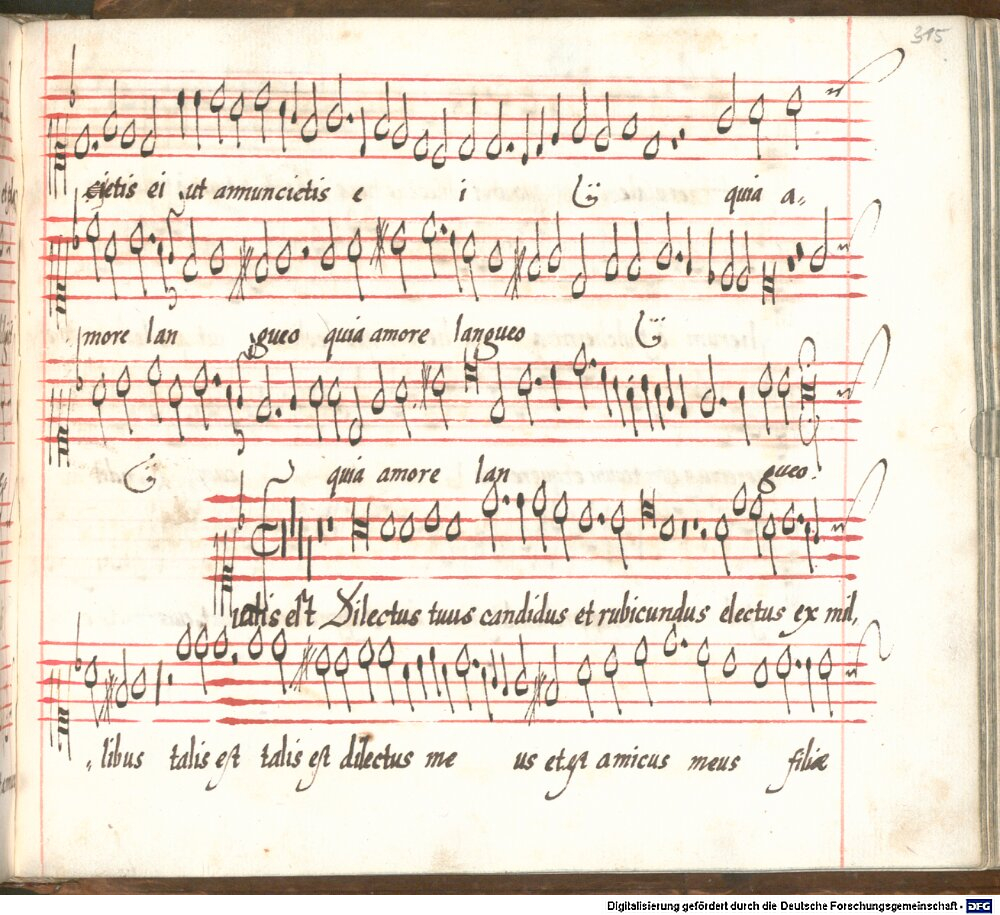 315
cietis ei ut annuncietis e i ij quia a-
more lan gueo quia amore langueo ij
ij quia amore lan gueo.
ualis est Dilectus tuus candidus et rubicundus electus ex mil-
-libus talis est talis est dilectus me us et est amicus meus filiæ
Digitalisierung gefördert durch die Deutsche Forschungsgemeinschaft - DFG